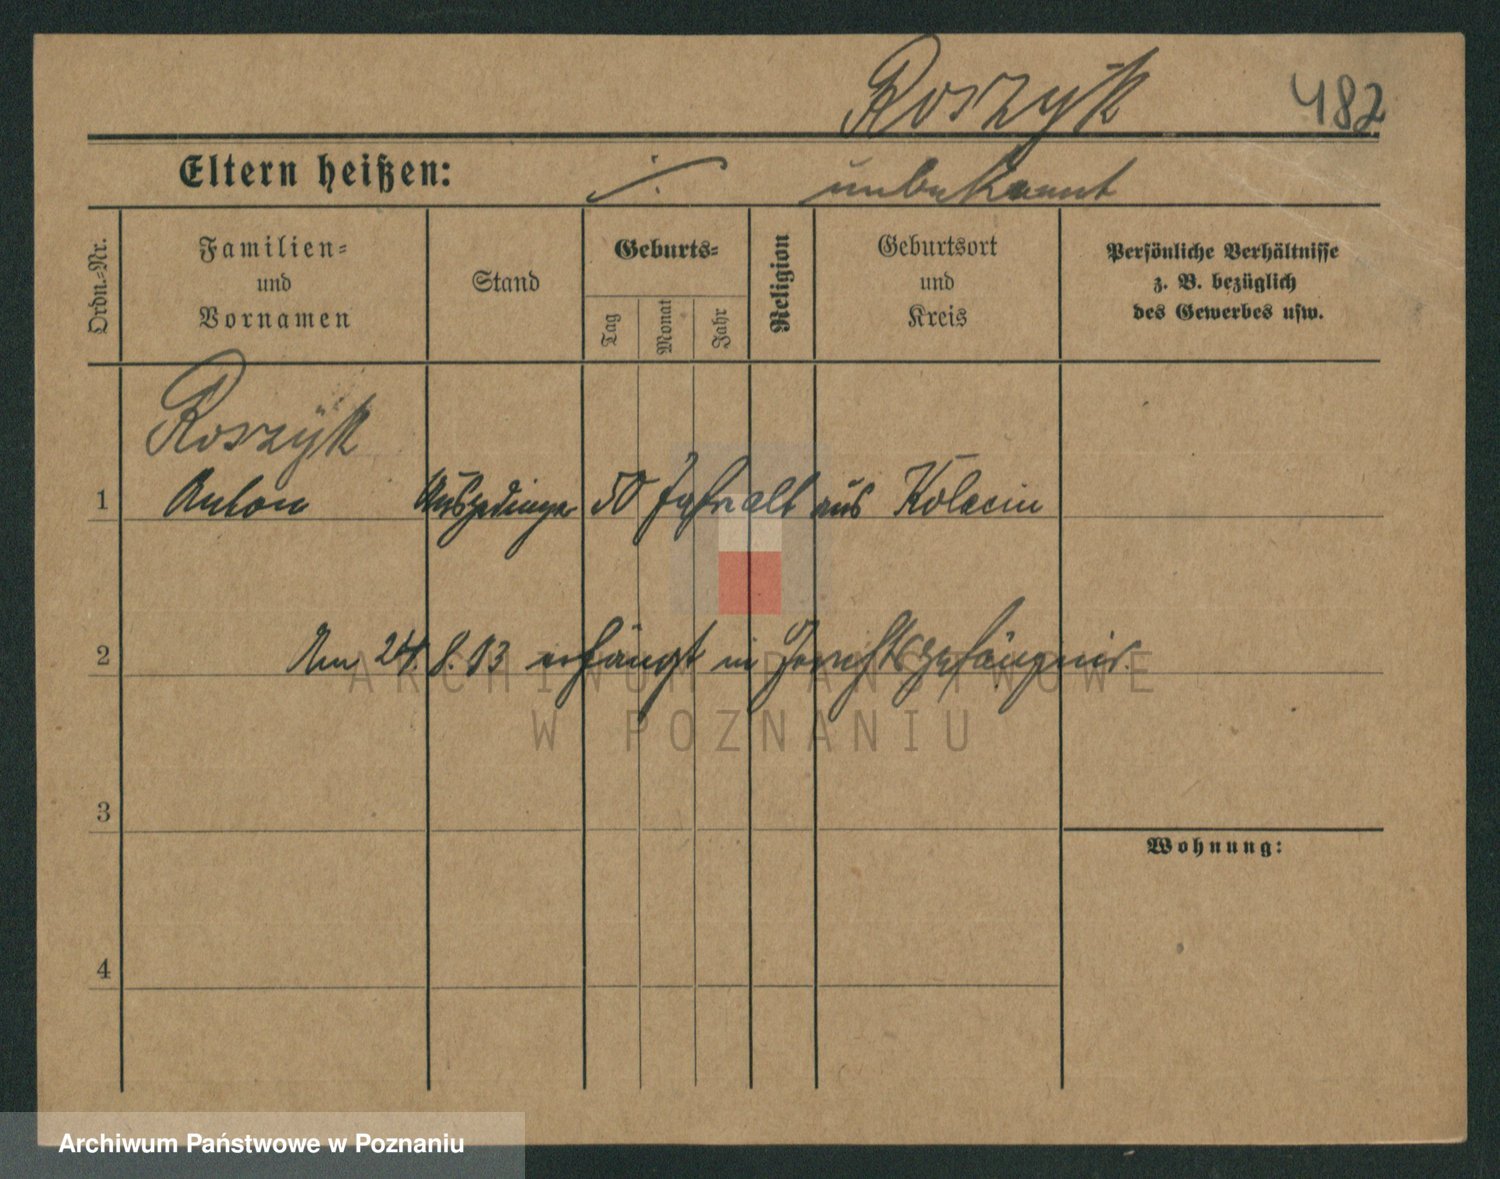 Roszyk 482
Eltern heißen: ·/· unbekannt
Ordn.-Nr.
Familien-
und
Vornamen
Stand
Geburts-
Tag
Monat
Jahr
Religion
Geburtsort
und
Kreis
Persönliche Verhältnisse
z. B. bezüglich
des Gewerbes usw.
Roszyk
1 Anton Ausgedinger 50 Jahr alt aus Kolacin
2 Am 24. 8. 03 erhängt im Gerichtsgefängnis.
3
Wohnung:
4
ARCHIWUM PAŃSTWOWE
W POZNANIU
Archiwum Państwowe w Poznaniu